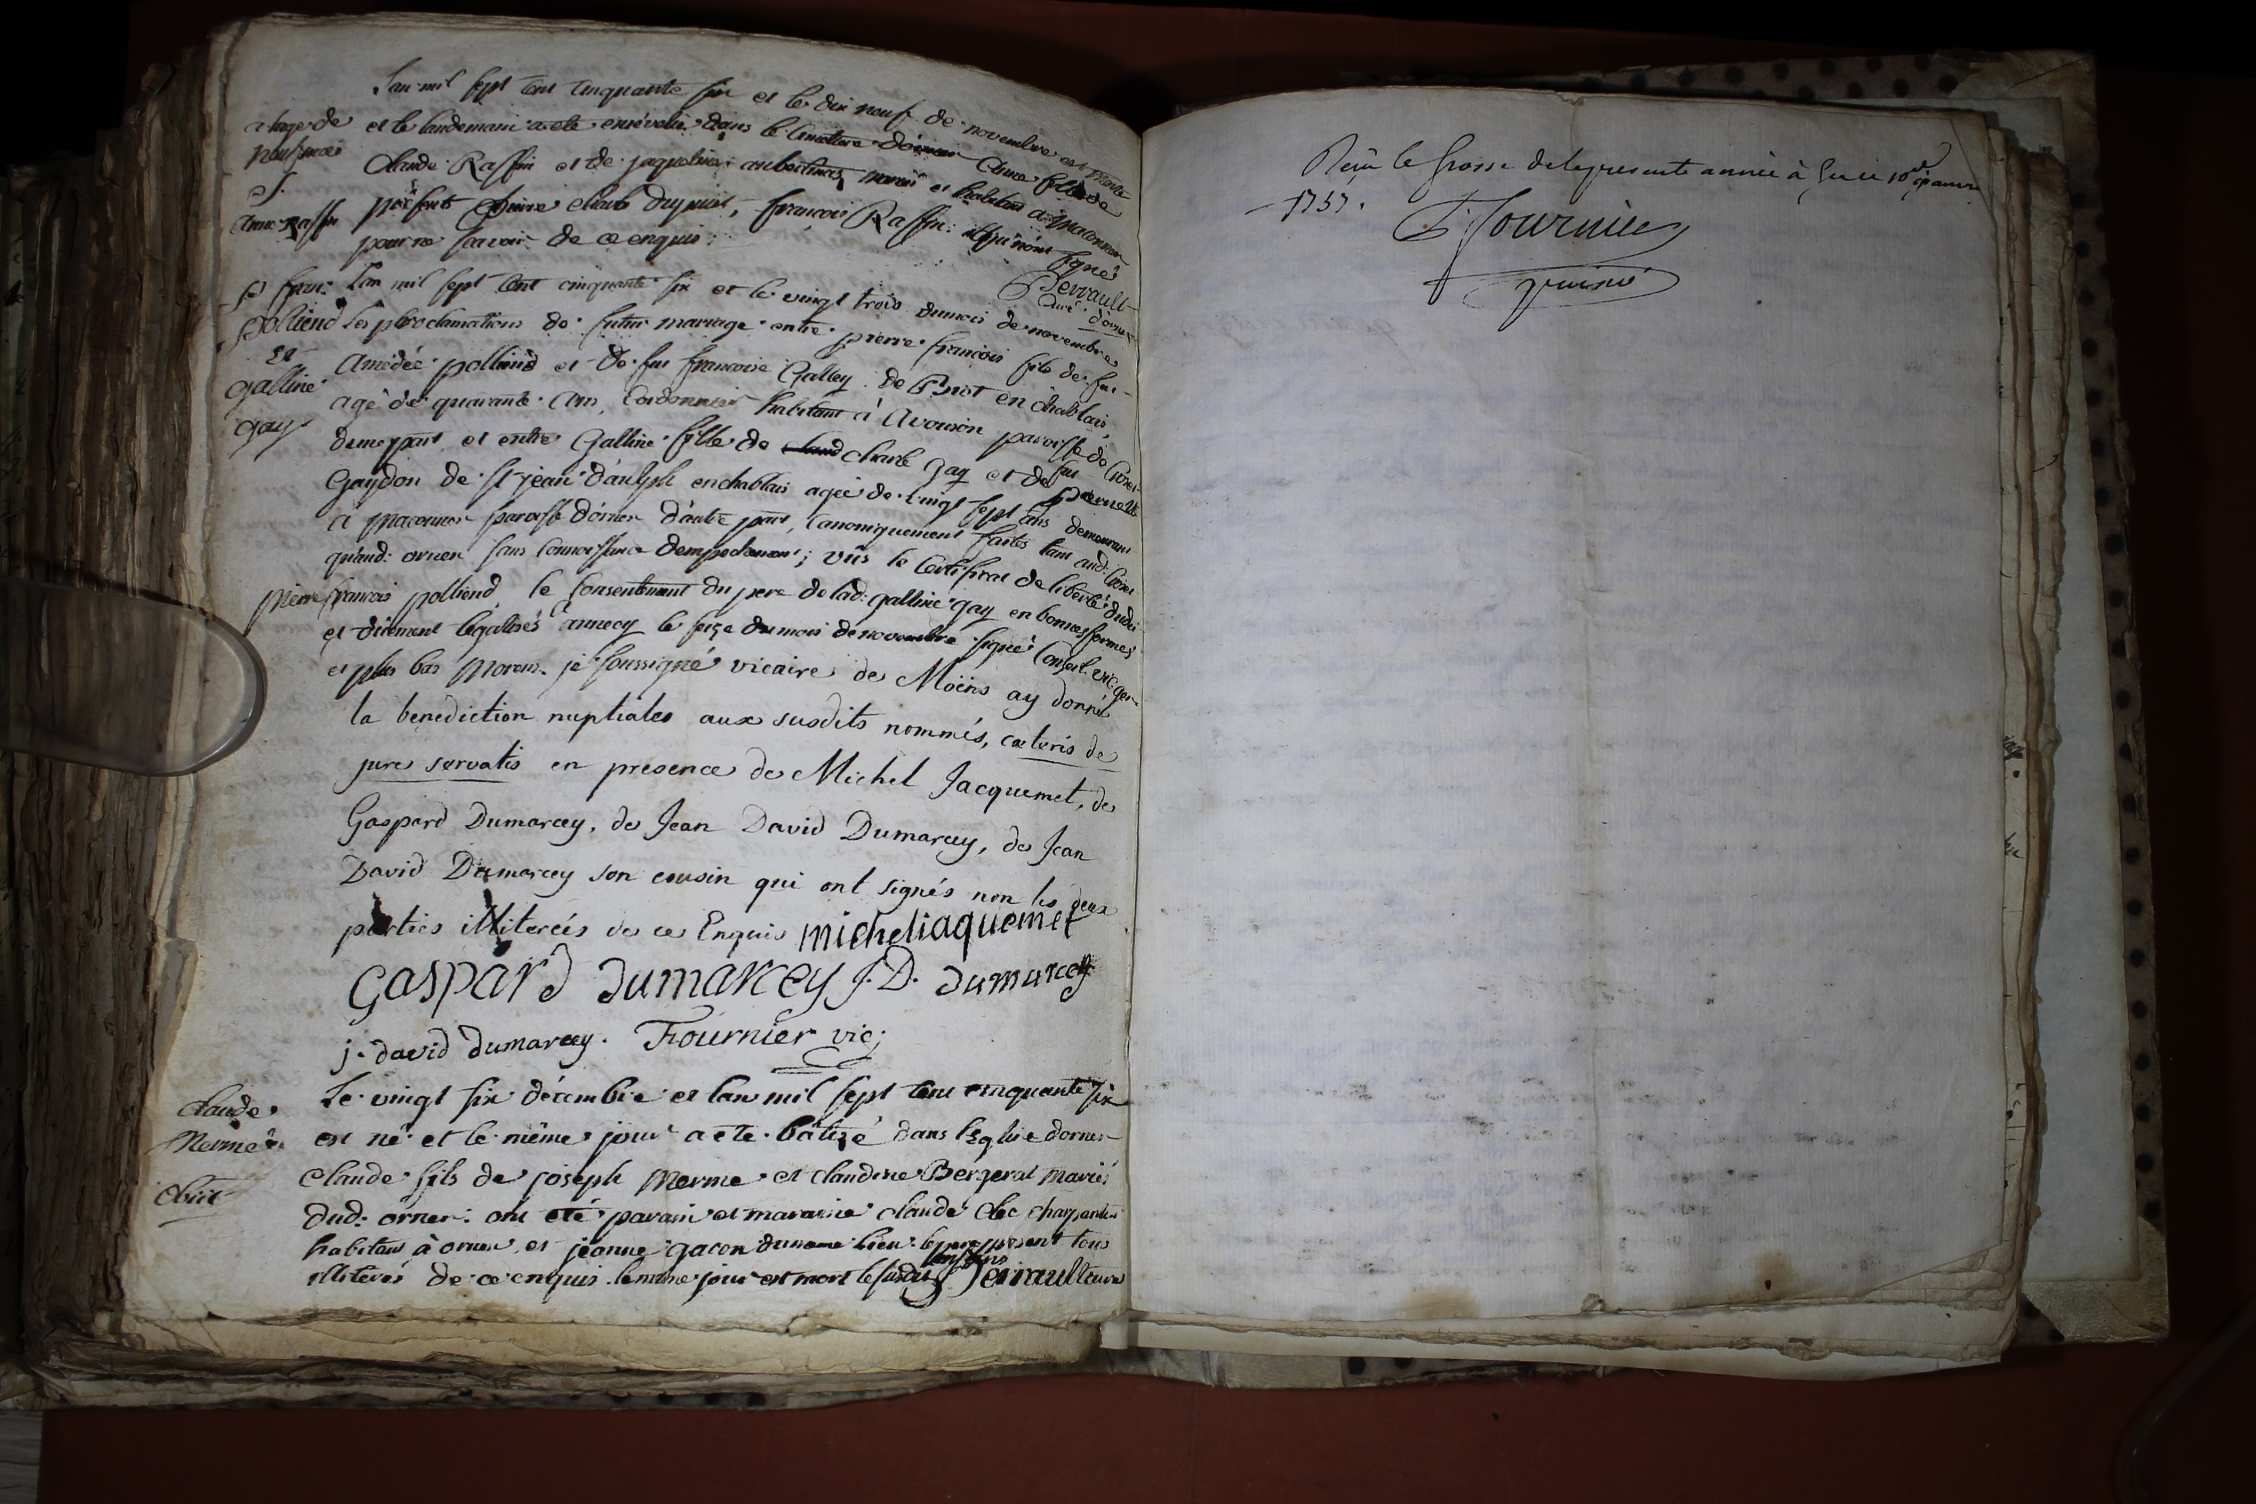 Lan mil sept cent cinquante six et le dix neuf de novembre est morte
a lage de
neuf mois
et le landemain a ete ensevelie dans le cimetiere d'ornex Anne fille de
Claude Raffin et de jaqueline mariés et habitans a Maconnex
S.
Anne Raffin
présents pierre claude dupuis, françois Raffin: qui n'ont signés
pour ne scavoir de ce enquis:
Perrault
curé d'ornex
p. franc:
polliend
et
galline
gay
Lan mil sept cent cinquante six et le vingt trois du mois de novembre
Les proclamations de futur mariage entre pierre françois fils de feu
Amedée polliend et de feu francoise Galley de Biot en chablais,
agé de quarante ans, Cordonnier habitant à Avouson paroisse de Crozet
dune part et entre Galline fille de claude gay et de feu pernette
Gaydon de st jean d'aulph en chablais agée de vingt sept ans demeurant
à Maconnex paroisse d'ornex d'autre part, canoniquement faites tant aud: Crozet
qu'aud: ornex sans connoissance d'empechement; vûs le Certificat de liberté dudit
pierre françois polliend le consentement du pere de lad: galline gay en bonnes formes
et düement légalisés a annecy le seize du mois de novembre signé Conseil vic: gen:
et plus bas Morens. je soussigné vicaire de Moëns ay donné
la benediction nuptiales aux susdits nommés, cæteris de
jure servatis en presence de Michel Jacquemet, de
Gaspard Dumarcey, de Jean David Dumarcey, de Jean
David Dumarcey son cousin qui ont signés non les deux
parties illiterées de ce Enquis micheliaquemet
Gaspard dumarcey J.D. dumarcey
j. david dumarcey. Fournier vic;
Claude
Merme
obiit
Le vingt six décembre et lan mil sept cent cinquante six
est né et le même jour a ete bâtizé dans l'Eglise dornex
Claude fils de joseph Merme et claudine Bergerat mariés
dud: ornex: ont eté parain et maraine claude charpentier
habitans à ornex, et jeanne gacon du même lieu: le pere present tous
illiterés de ce enquis. le même jour est mort le susdit enfans Perrault curé
Reçu la Grosse de la presente année à Gex ce 10e janvier
1757.
Fournier